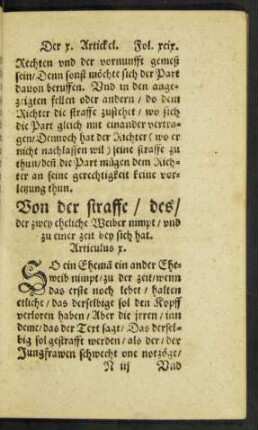 Der x. Artickel. Fol. xcix.
Rechten vnd der vornunfft gemeß
sein/Denn sonst möchte sich der Part
dauon beruffen. Vnd in den ange-
zeigten fellen oder andern/do dem
Richter die straffe zustehet/wo sich
die Part gleich mit einander vertra-
gen/Dennoch hat der Richter (wo er
nicht nachlassen wil) seine straffe zu
thun/deñ die Part mügen dem Rich-
ter an seine gerechtigkeit keine vor-
letzung thun.
Von der straffe/des/
der zwey eheliche Weiber nimpt/vnd
zu einer zeit bey sich hat.
Articulus x.
SO ein Ehemã ein ander Ehe-
weib nimpt/zu der zeit/wenn
das erste noch lebet/halten
etliche/das derselbige sol den Kopff
verloren haben/Aber die jrren/inn
deme/das der Text sagt/Das dersel-
big sol gestrafft werden/als der/der
Jungfrawen schwecht one notzöge/
N iij Vnd